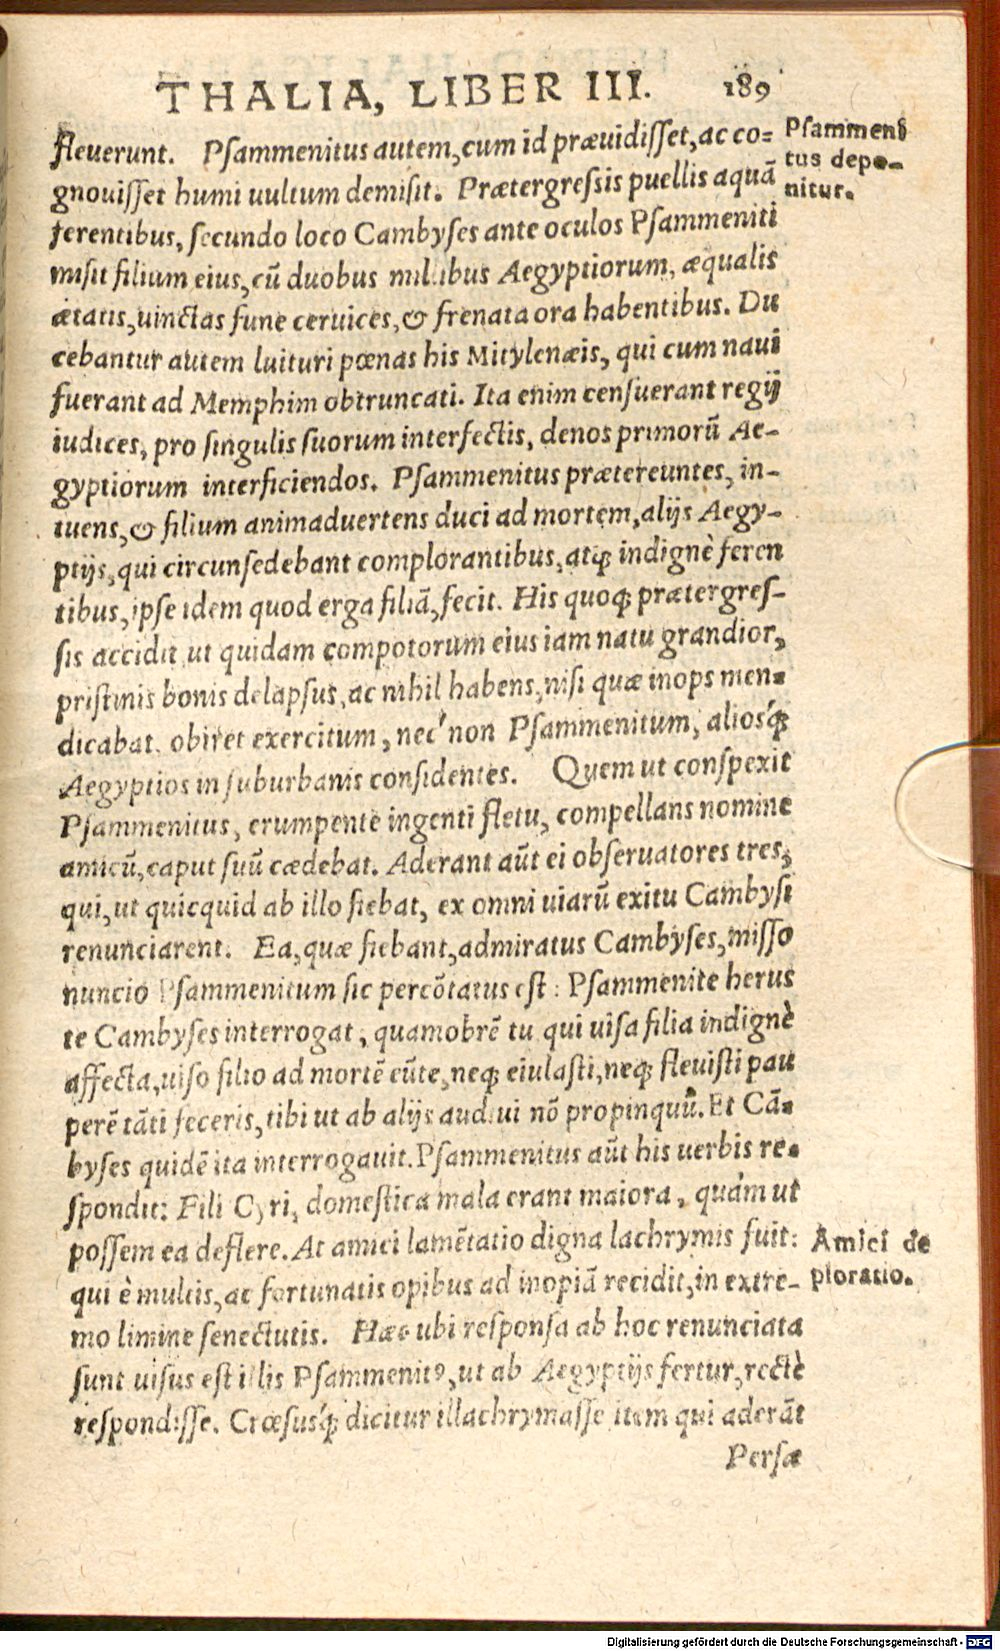 THALIA, LIBER III. 189
fleuerunt. Psammenitus autem, cum id præuidisset, ac co-
gnouisset humi uultum demisit. Prætergressis puellis aquā
ferentibus, secundo loco Cambyses ante oculos Psammeniti
misit filium eius, cū duobus millibus Aegyptiorum, æqualis
ætatis, uinctas fune ceruices, & frenata ora habentibus. Du
cebantur autem luituri pœnas his Mitylenæis, qui cum naui
fuerant ad Memphim obtruncati. Ita enim censuerant regij
iudices, pro singulis suorum interfectis, denos primorū Ae-
gyptiorum interficiendos. Psammenitus prætereuntes, in-
tuens, & filium animaduertens duci ad mortem, alijs Aegy-
ptijs, qui circunsedebant complorantibus, atq; indignè feren
tibus, ipse idem quod erga filiā, fecit. His quoq; prætergres-
sis accidit ut quidam compotorum eius iam natu grandior,
pristinis bonis delapsus, ac nihil habens, nisi quæ inops men-
dicabat, obiret exercitum, nec non Psammenitum, aliosq́;
Aegyptios in suburbanis considentes. Quem ut conspexit
Psammenitus, erumpente ingenti fletu, compellans nomine
amicū, caput suū cædebat. Aderant aūt ei obseruatores tres,
qui, ut quicquid ab illo fiebat, ex omni uiarū exitu Cambysi
renunciarent. Ea, quæ fiebant, admiratus Cambyses, misso
nuncio Psammenitum sic percōtatus est: Psammenite herus
te Cambyses interrogat, quamobrē tu qui uisa filia indignè
affecta, uiso filio ad mortē eūte, neq; eiulasti, neq; fleuisti pau
perē tāti feceris, tibi ut ab alijs audiui nō propinquū. Et Cā-
byses quidē ita interrogauit. Psammenitus aūt his uerbis re-
spondit: Fili Cyri, domestica mala erant maiora, quàm ut
possem ea deflere. At amici lamētatio digna lachrymis fuit:
qui è multis, ac fortunatis opibus ad inopiā recidit, in extre-
mo limine senectutis. Hæc ubi responsa ab hoc renunciata
sunt uisus est illis Psammenitꝰ, ut ab Aegyptijs fertur, rectè
respondisse. Crœsusq́; dicitur illachrymasse item qui aderāt
Persæ
Psammeni
tus depo-
nitur.
Amici de
ploratio.
Digitalisierung gefördert durch die Deutsche Forschungsgemeinschaft - DFG